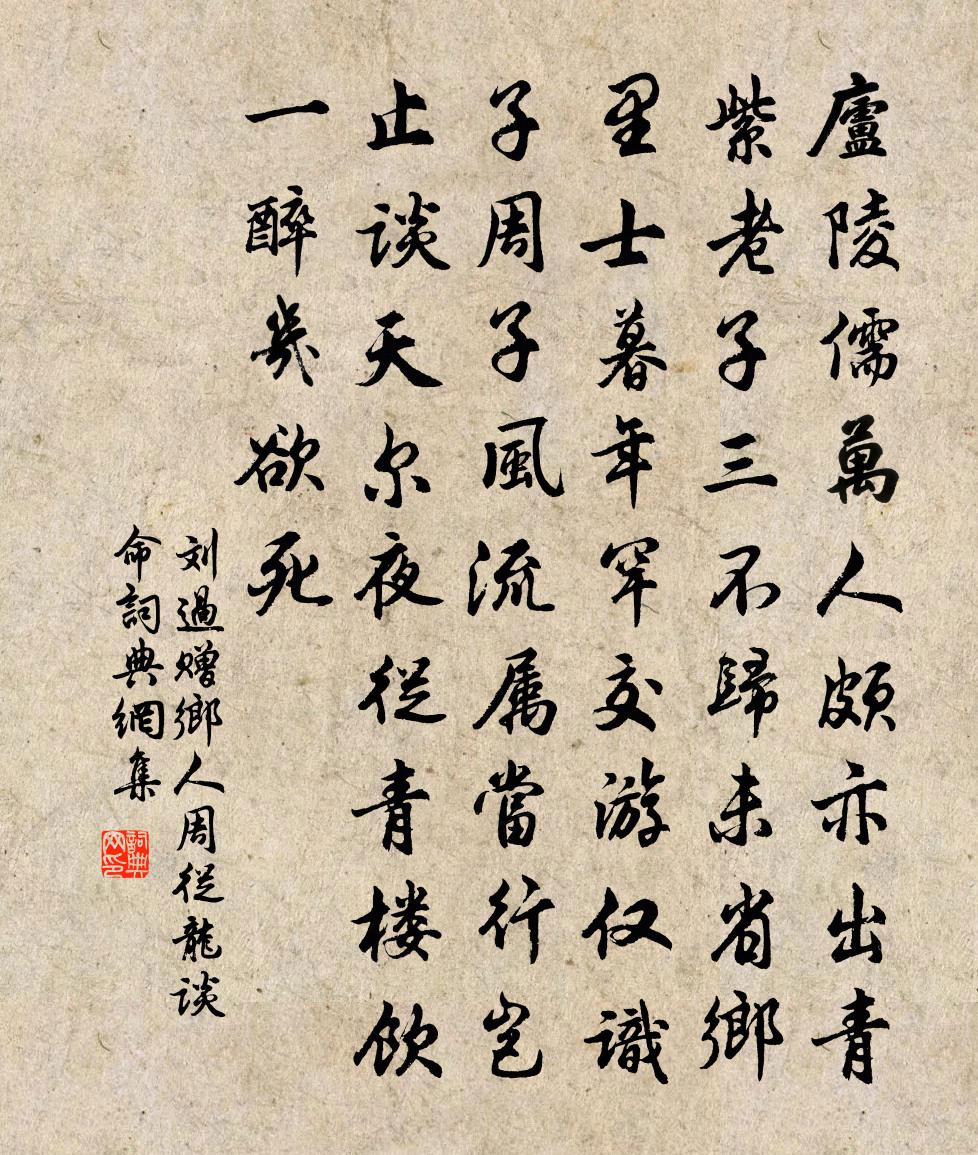 廬陵儒萬人頗亦出青
紫老子三不歸未省鄉
里士暮年罕交游仅識
子周子風流属當行岂
止谈天尔夜從青楼飲
一醉幾欲死
刘過赠鄉人周從龍谈
命詞典網集
詞典
网印